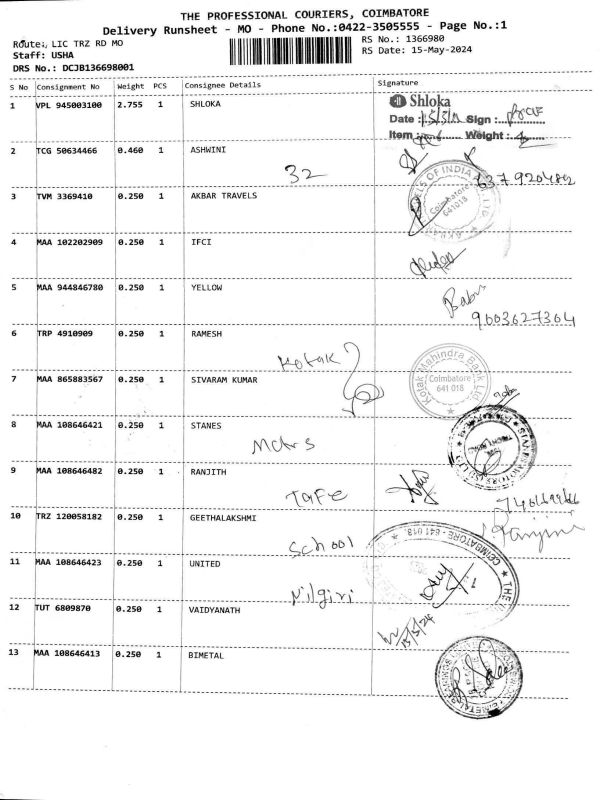 THE PROFESSIONAL COURIERS, COIMBATORE
Delivery Runsheet - MO - Phone No.:0422-3505555 - Page No.:1
Route: LIC TRZ RD MO
RS No.: 1366980
Staff: USHA
RS Date: 15-May-2024
DRS No.: DCJB136698001
S No Consignment No Weight PCS Consignee Details Signature
1 VPL 945003100 2.755 1 SHLOKA
Shloka
Date : Sign :
Item : Weight :
2 TCG 50634466 0.460 1 ASHWINI
32
3 TVM 3369410 0.250 1 AKBAR TRAVELS
Coimbatore
641018
4 MAA 102202909 0.250 1 IFCI
5 MAA 944846780 0.250 1 YELLOW
Babu
9003627304
6 TRP 4910909 0.250 1 RAMESH
Kotak
Kotak Mahindra Bank Ltd
Coimbatore
641 018
7 MAA 865883567 0.250 1 SIVARAM KUMAR
8 MAA 108646421 0.250 1 STANES
9 MAA 108646482 0.250 1 RANJITH
TAFE
10 TRZ 120058182 0.250 1 GEETHALAKSHMI
Ranjini
School
COIMBATORE - 641 018.
11 MAA 108646423 0.250 1 UNITED
Nilgiri
12 TUT 6809870 0.250 1 VAIDYANATH
15/5/24
13 MAA 108646413 0.250 1 BIMETAL